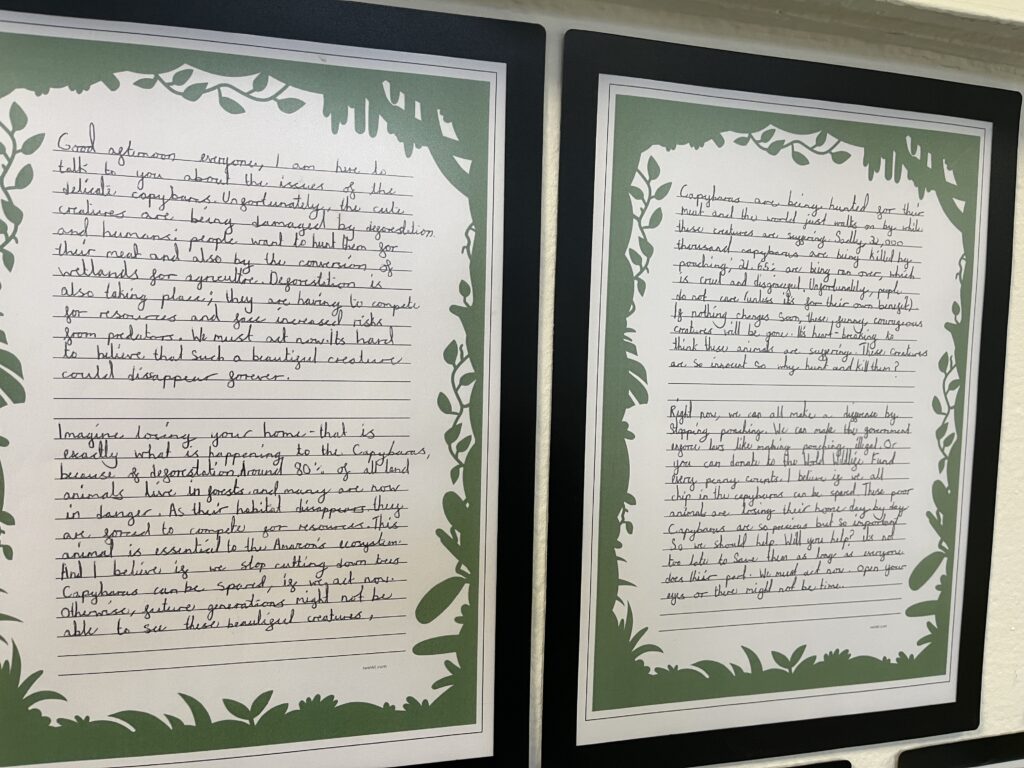 Good afternoon everyone, I am here to
talk to you about the issues of the
delicate capybaras. Unfortunately, the cute
creatures are being damaged by deforestation
and humans; people want to hunt them for
their meat and also by the conversion of
wetlands for agriculture. Deforestation is
also taking place; they are having to compete
for resources and face increased risks
from predators. We must act now. Its hard
to believe that such a beautiful creature
could dissappear forever.
Imagine losing your home - that is
exactly what is happening to the Capybaras,
because of deforestation. Around 80% of all land
animals live in forests and many are now
in danger. As their habitat disappears they
are forced to compete for resources. This
animal is essential to the Amazon's ecosystem.
And I believe if we stop cutting down trees
Capybaras can be spared, if we act now.
Otherwise, future generations might not be
able to see these beautiful creatures.
twinkl.com
Capybaras are being hunted for their
meat and the world just walks on by while
these creatures are suffering. Sadly 21,000
thousand capybaras are being killed by
poaching; 21.65% are being ran over, which
is cruel and disgraceful. Unfortunately, people
do not care (unless its for their own benefit)
If nothing changes soon, these funny, courageous
creatures will be gone. It's heart-breaking to
think these animals are suffering. These creatures
are so innocent so why hunt and kill them?
Right now, we can all make a difference by
stopping poaching. We can make the government
enforce laws like making poaching illegal. Or
you can donate to the World Wildlife Fund
every penny counts. I believe if we all
chip in the capybaras can be spared. These poor
animals are losing their home day by day
Capybaras are so precious but so important
So we should help. Will you help? its not
too late to save them as long as everyone
does their part. We must act now. Open your
eyes or there might not be time.
twinkl.com